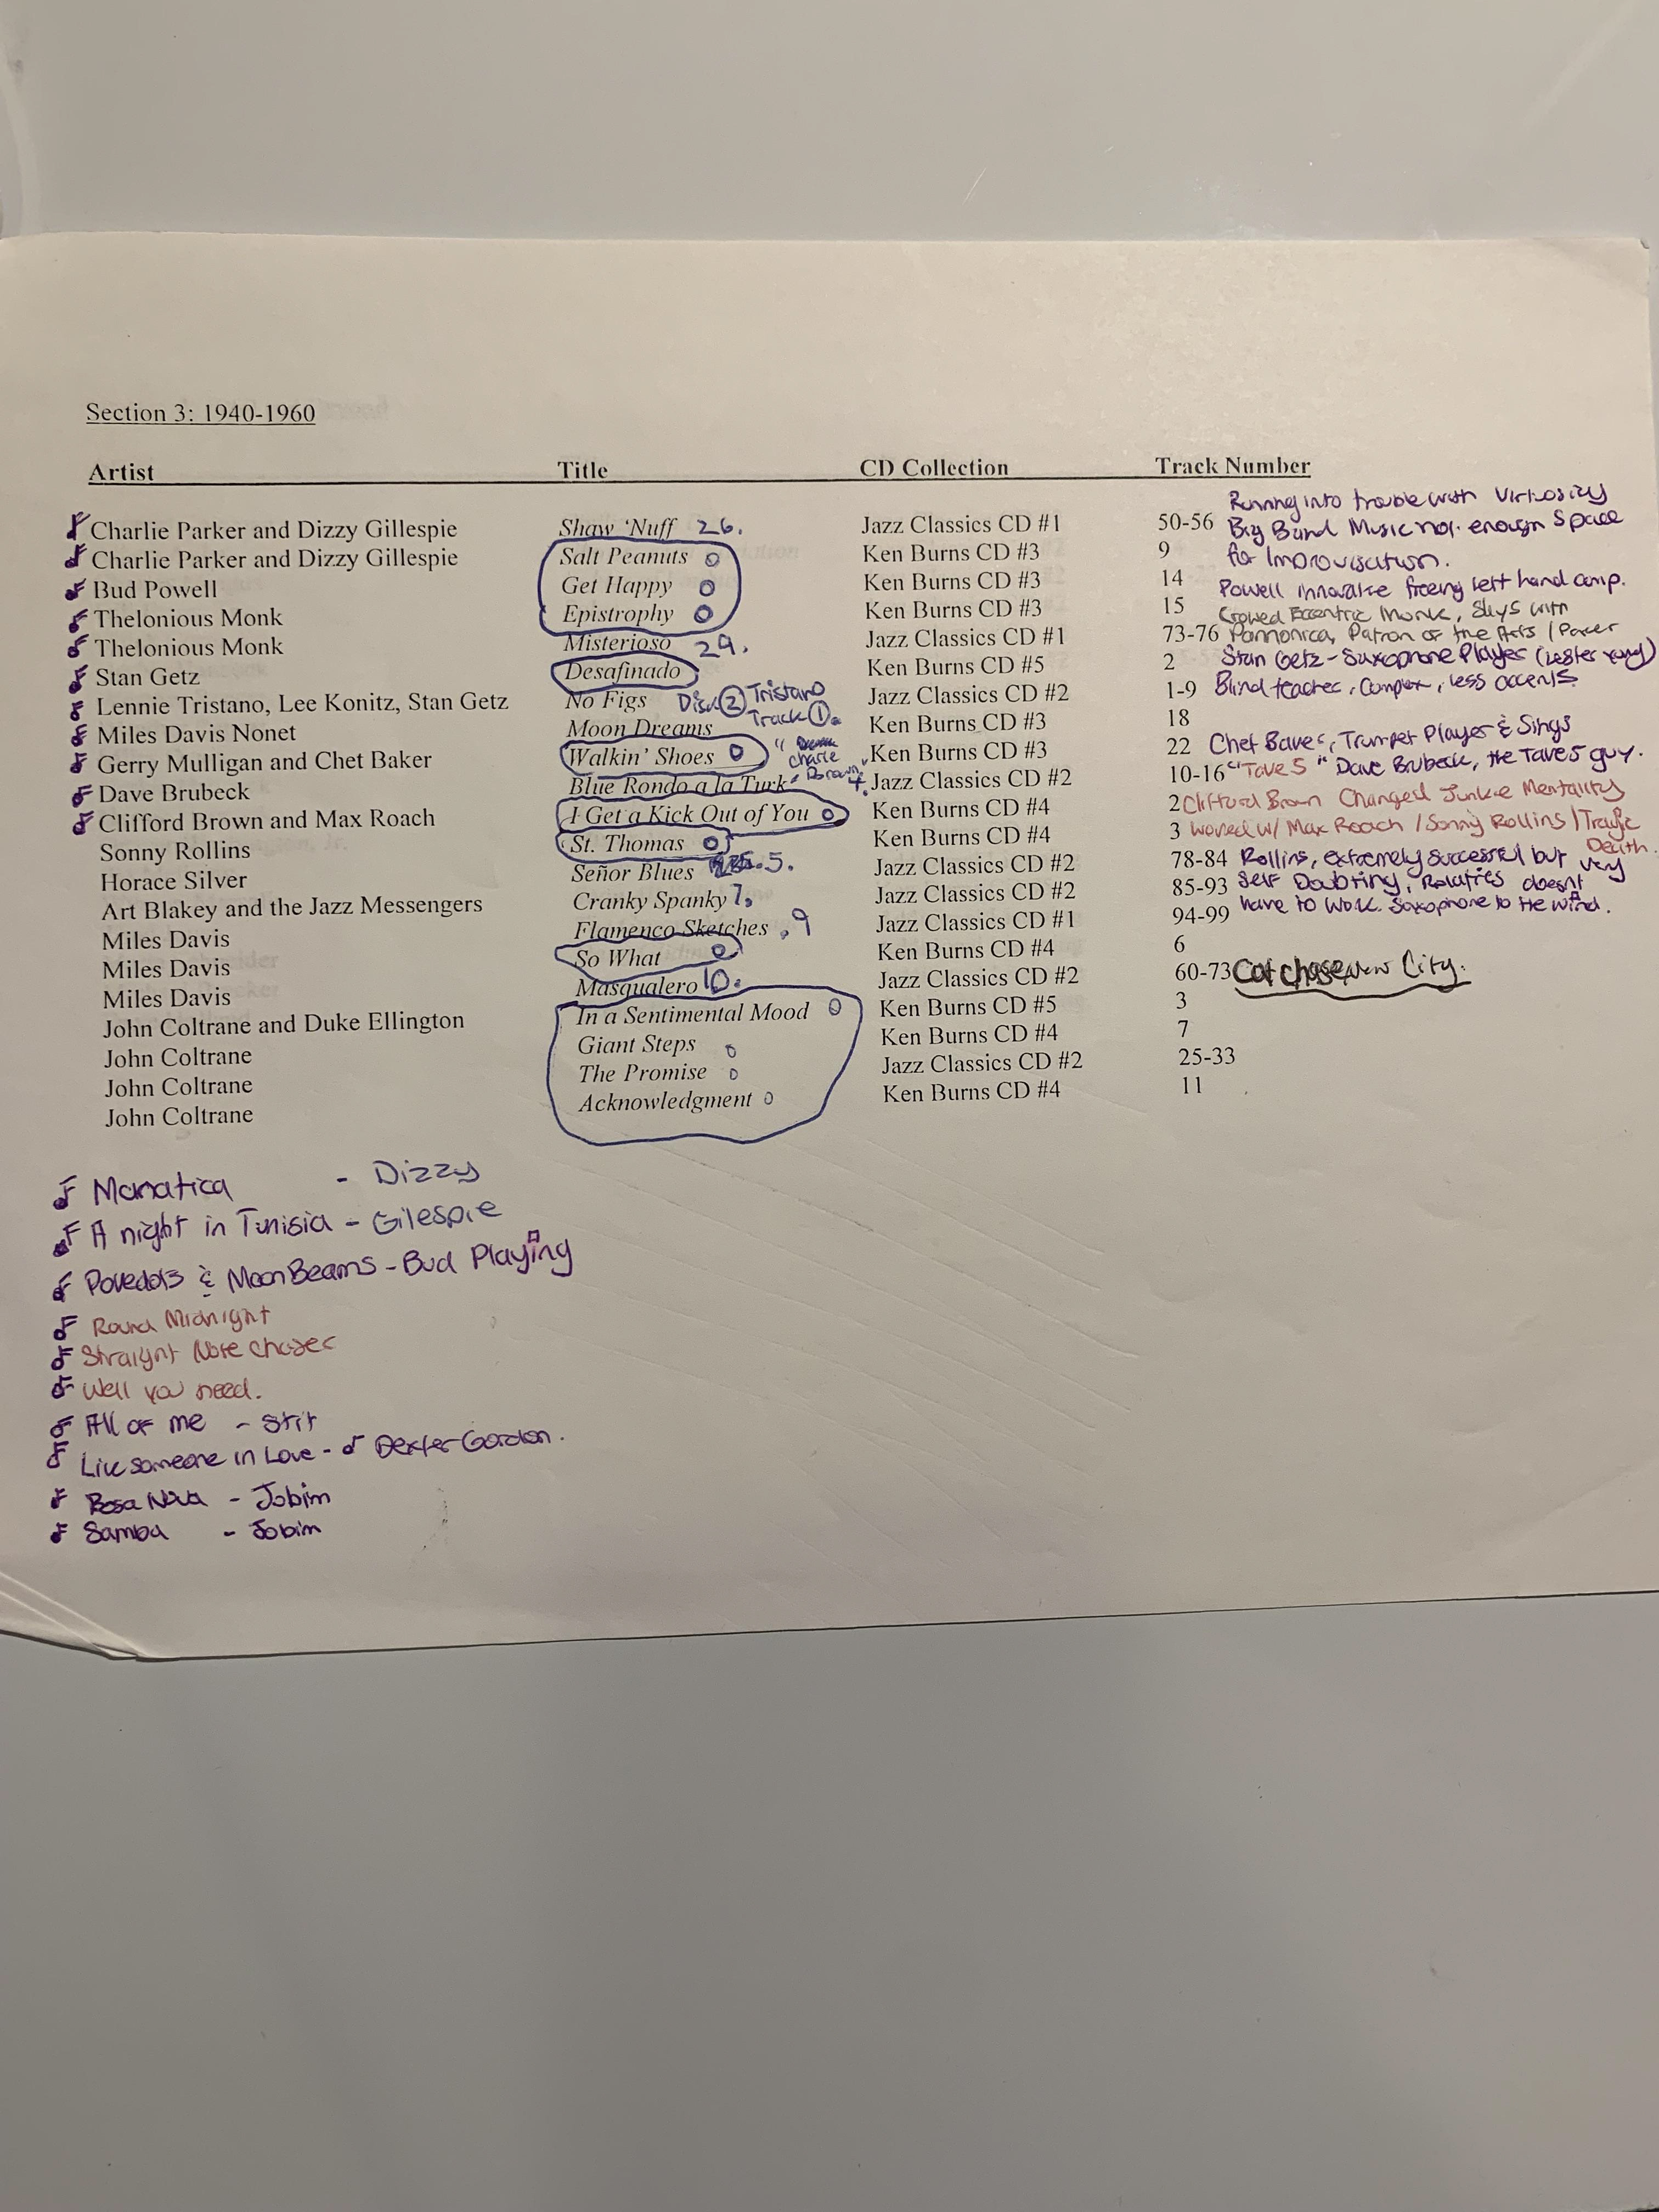 Section 3: 1940-1960
Artist Title CD Collection Track Number
Running into trouble with Virtuosity
Charlie Parker and Dizzy Gillespie Shaw 'Nuff 26. Jazz Classics CD #1 50-56 Big Band Music not enough Space
Charlie Parker and Dizzy Gillespie Salt Peanuts Ken Burns CD #3 9 for Improvisation.
Bud Powell Get Happy Ken Burns CD #3 14 Powell innovative freeing left hand comp.
Thelonious Monk Epistrophy Ken Burns CD #3 15 Eccentric Monk, Stays with
Thelonious Monk Misterioso 29. Jazz Classics CD #1 73-76 Pannonica, Patron of the Arts /
Stan Getz Desafinado Ken Burns CD #5 2 Stan Getz - Saxophone Player (Lester Young)
Lennie Tristano, Lee Konitz, Stan Getz No Figs Disc 2 Tristano Track 1. Jazz Classics CD #2 1-9 Blind teacher, Complex, less accents
Miles Davis Nonet Moon Dreams Ken Burns CD #3 18
Gerry Mulligan and Chet Baker Walkin' Shoes Ken Burns CD #3 22 Chet Baker, Trumpet Player & Sings
Dave Brubeck Blue Rondo a la Turk "Charlie Brown" 4. Jazz Classics CD #2 10-16 "Take 5" Dave Brubeck, the Take 5 guy.
Clifford Brown and Max Roach I Get a Kick Out of You Ken Burns CD #4 2 Clifford Brown Changed Junkie Mentality
Sonny Rollins St. Thomas Ken Burns CD #4 3 worked w/ Max Roach / Sonny Rollins / Tragic Death.
Horace Silver Señor Blues 5. Jazz Classics CD #2 78-84 Rollins, extremely successful but very
Art Blakey and the Jazz Messengers Cranky Spanky 7. Jazz Classics CD #2 85-93 Self Doubting, doesn't
Miles Davis Flamenco Sketches .9 Jazz Classics CD #1 94-99 have to work. Saxophone to the wind.
Miles Davis So What Ken Burns CD #4 6
Miles Davis Masqualero 10. Jazz Classics CD #2 60-73 City.
John Coltrane and Duke Ellington In a Sentimental Mood Ken Burns CD #5 3
John Coltrane Giant Steps Ken Burns CD #4 7
John Coltrane The Promise Jazz Classics CD #2 25-33
John Coltrane Acknowledgment Ken Burns CD #4 11
Manatica - Dizzy
A night in Tunisia - Gilespie
& MoonBeams - Bud Playing
Round Midnight
Straight Note Chaser
Well you need.
All of me - Stit
Like someone in Love - Dexter Gordon.
Bosa Nova - Jobim
Samba - Jobim